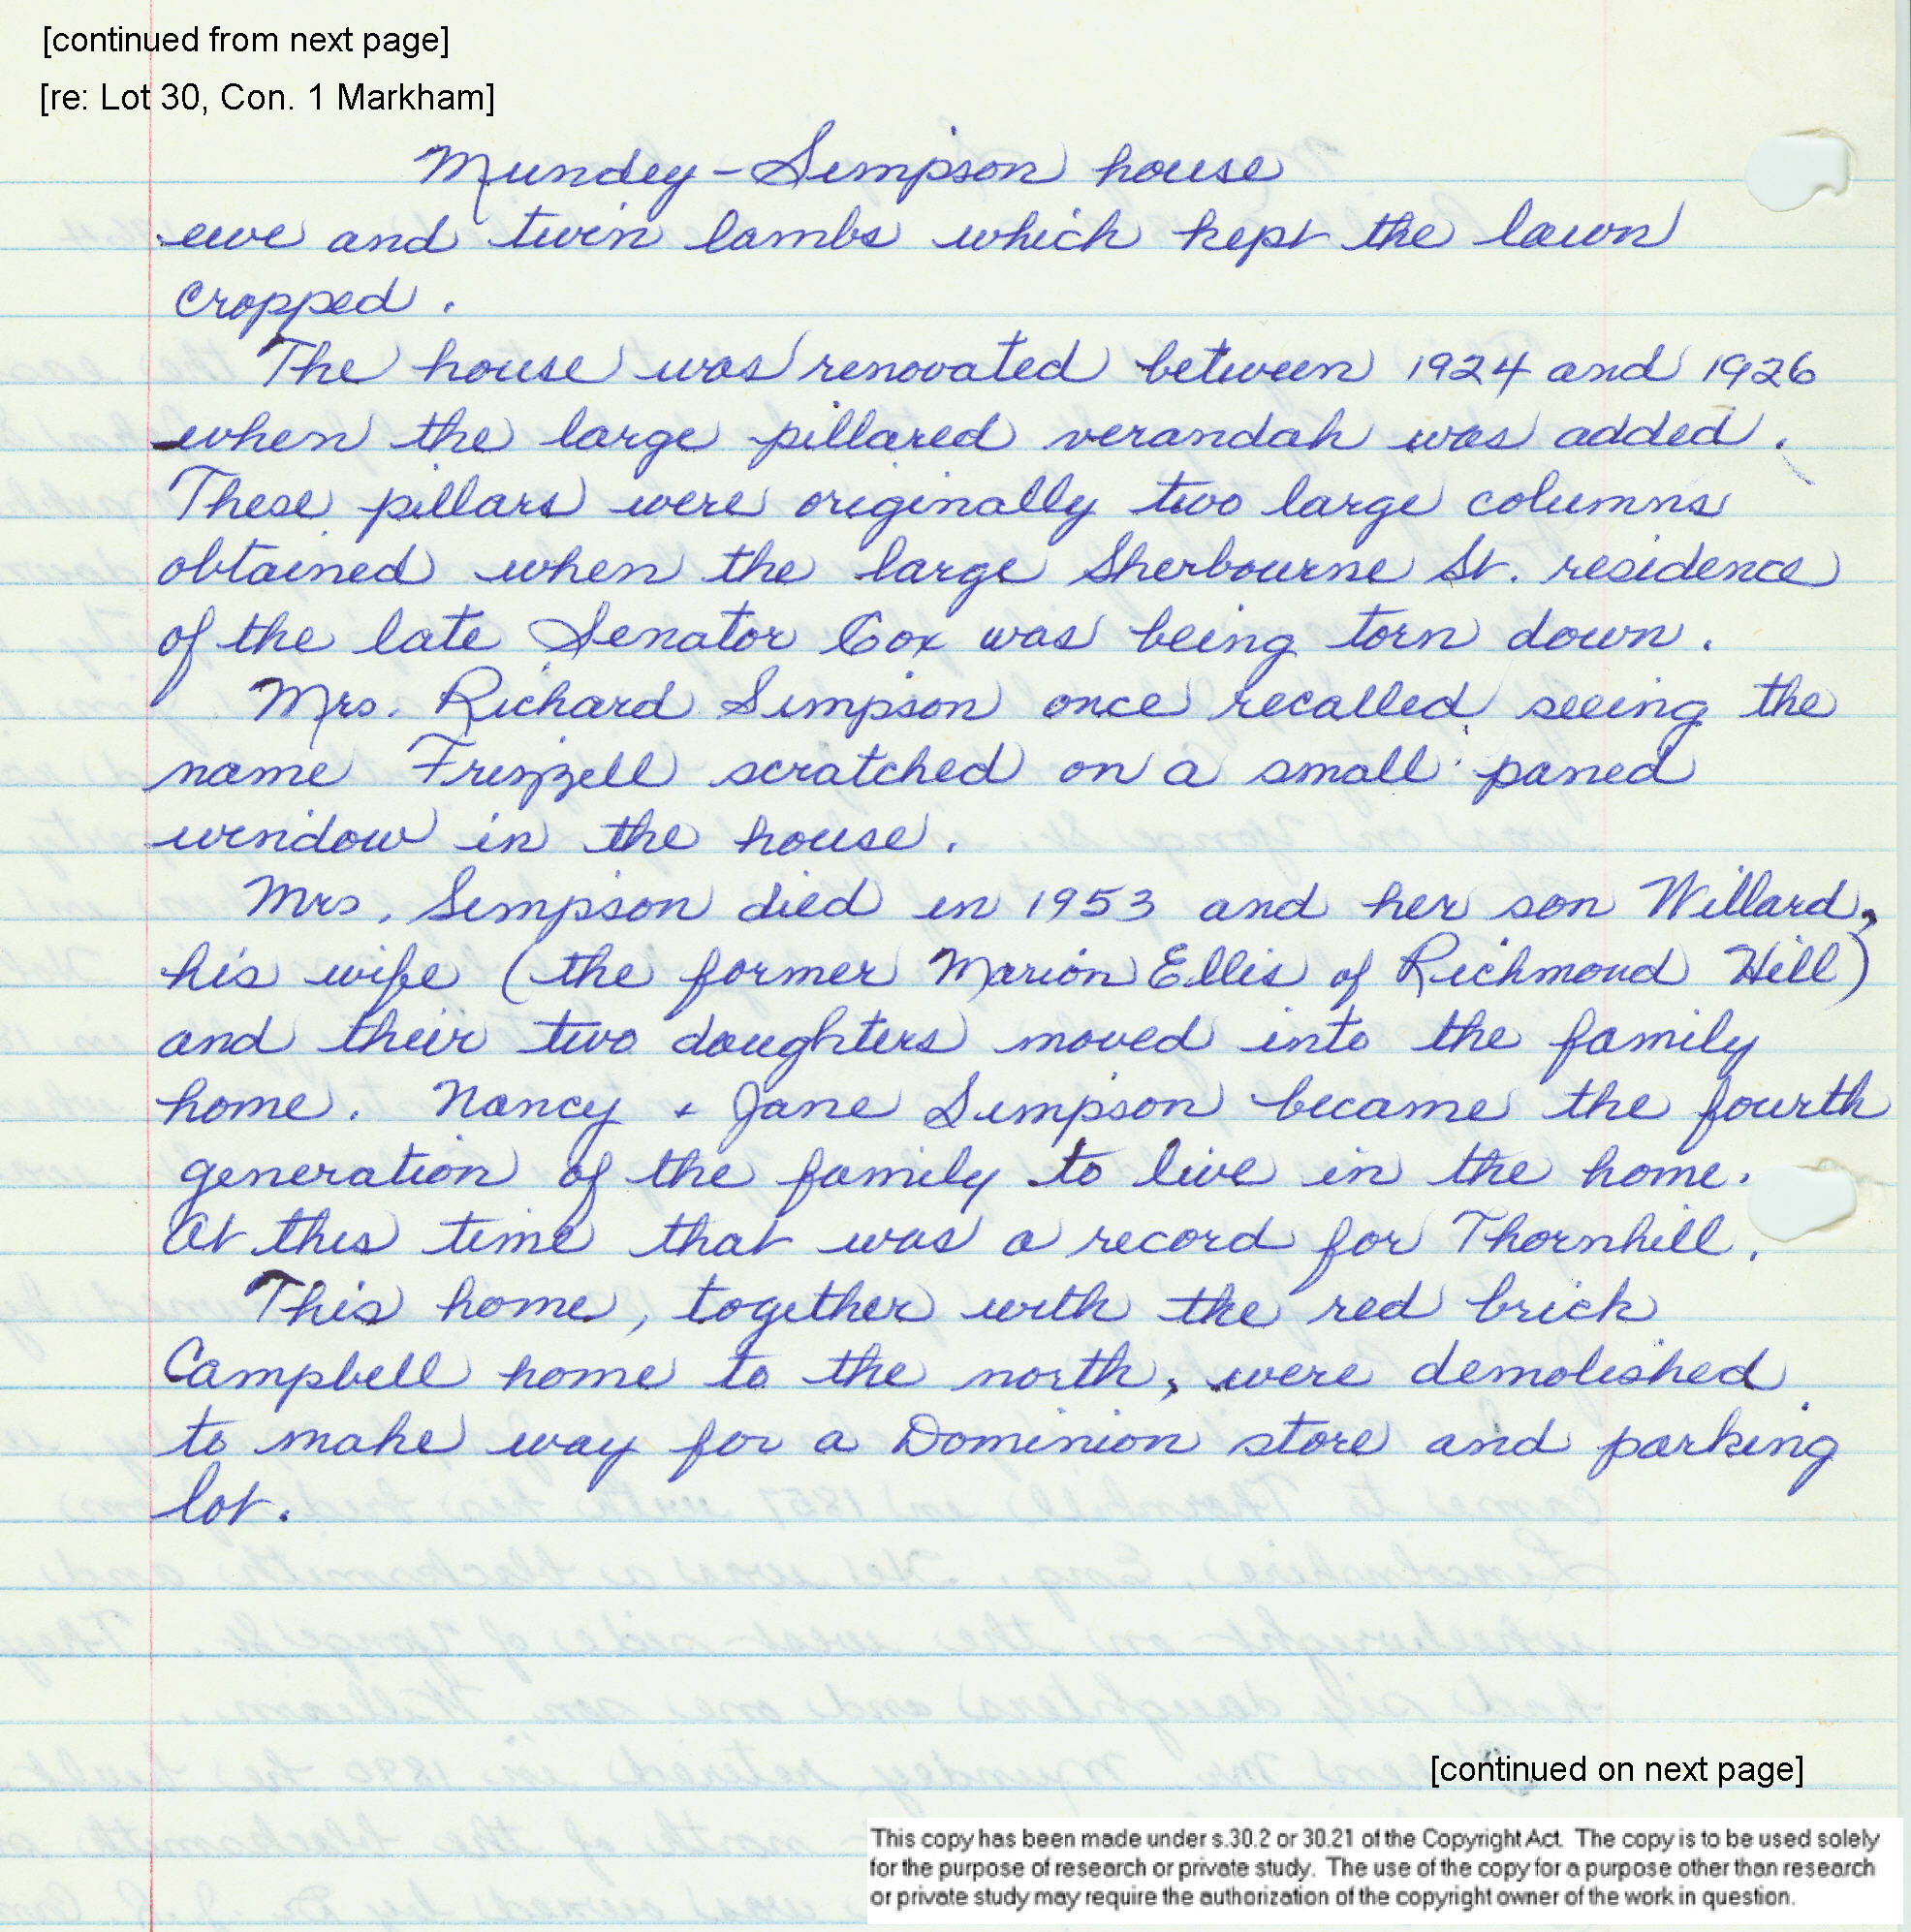 [continued from next page]
[re: Lot 30, Con. 1 Markham]
Mundey-Simpson house
ewe and twin lambs which kept the lawn
cropped.
The house was renovated between 1924 and 1926
when the large pillared verandah was added.
These pillars were originally two large columns
obtained when the large Sherbourne St. residence
of the late Senator Cox was being torn down.
Mrs. Richard Simpson once recalled seeing the
name Frizzell scratched on a small paned
window in the house.
Mrs. Simpson died in 1953 and her son Willard,
his wife (the former Marion Ellis of Richmond Hill)
and their two daughters moved into the family
home. Nancy + Jane Simpson became the fourth
generation of the family to live in the home.
At this time that was a record for Thornhill.
This home, together with the red brick
Campbell home to the north, were demolished
to make way for a Dominion store and parking
lot.
[continued on next page]
This copy has been made under s.30.2 or 30.21 of the Copyright Act. The copy is to be used solely
for the purpose of research or private study. The use of the copy for a purpose other than research
or private study may require the authorization of the copyright owner of the work in question.